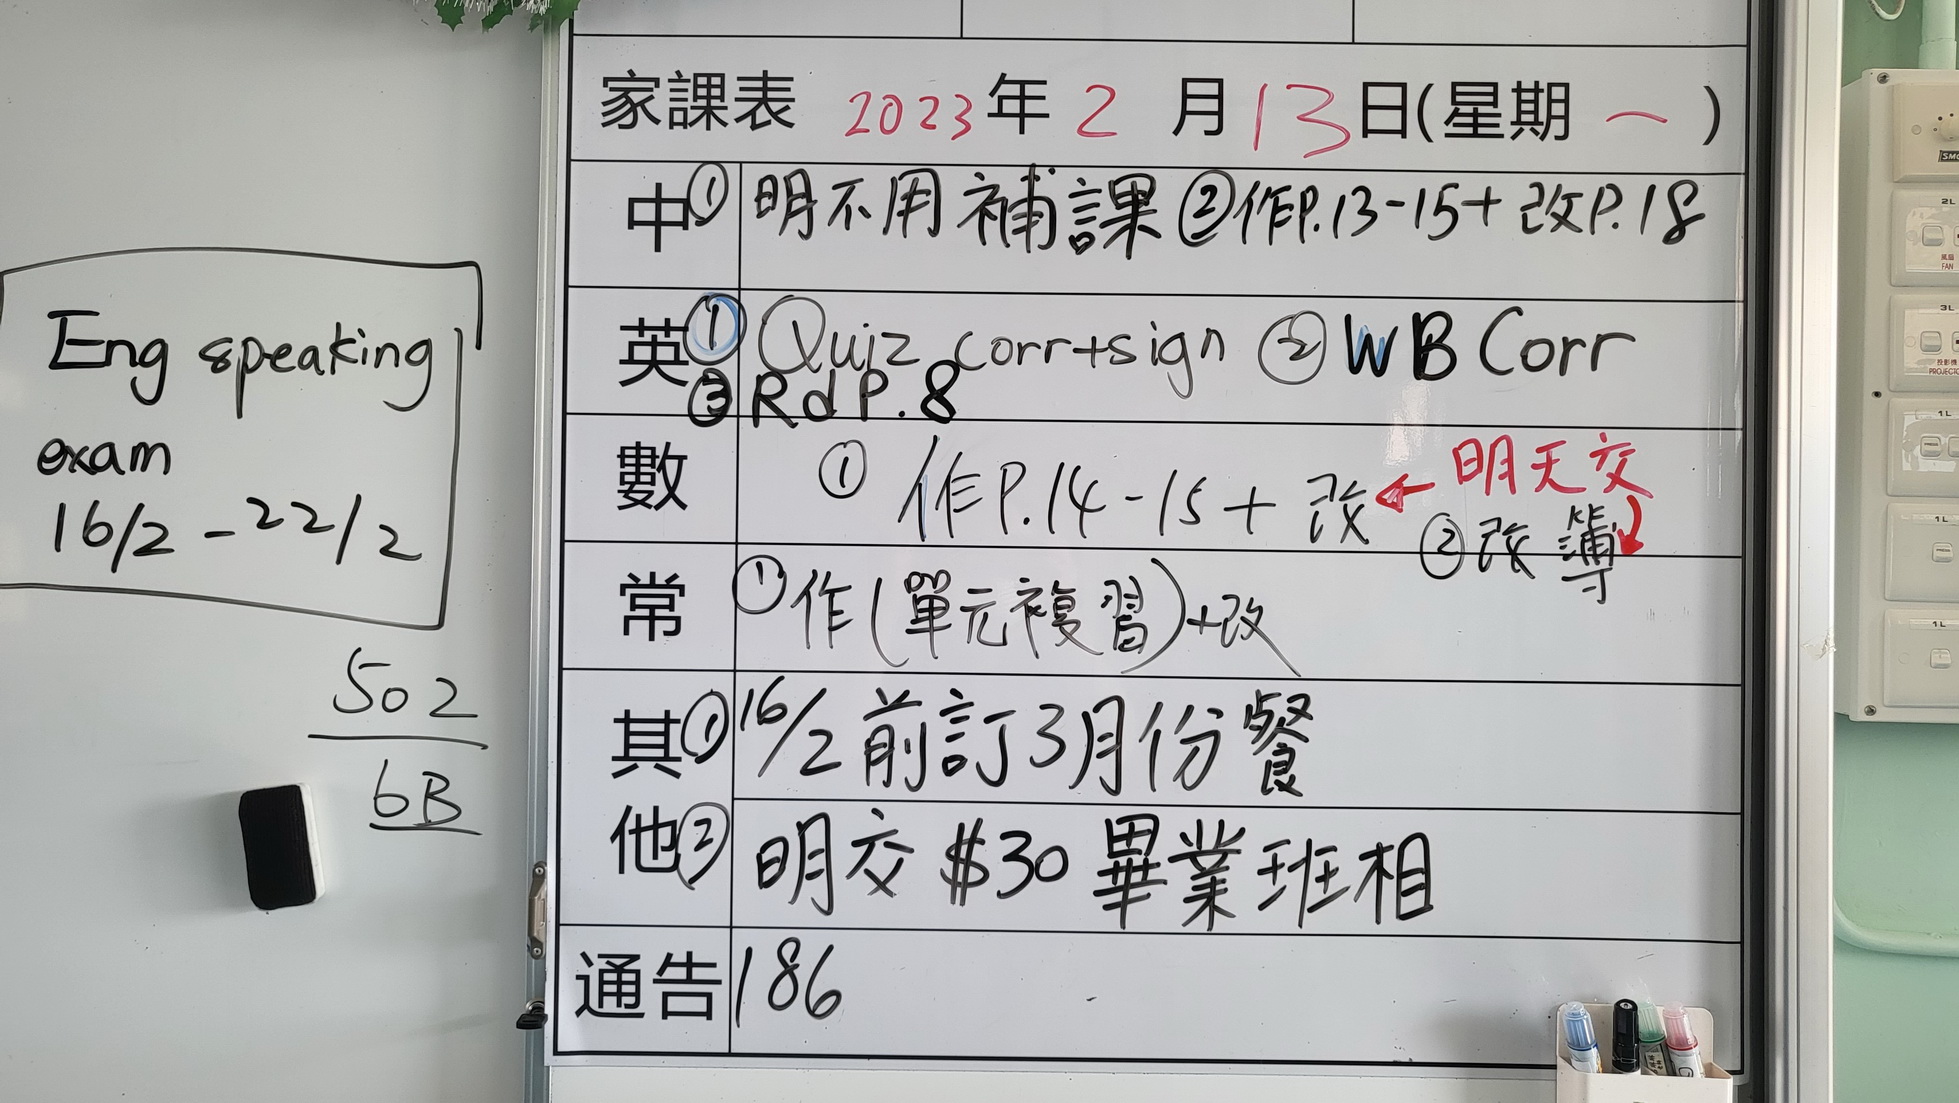 家課表 2023年 2 月 13日(星期 一 )
中① 明不用補課 ②作P.13-15+改P.18
英① Quiz corr+sign ② WB Corr
③ Rd P.8
數 ① 作P.14-15+改 ← 明天交
② 改簿
常 ① 作(單元複習)+改
其① 16/2前訂3月份餐
他② 明交$30畢業班相
通告 186
Eng speaking
exam
16/2-22/2
502
6B
2L
風扇
FAN
3L
投影機
1L
1L
1L